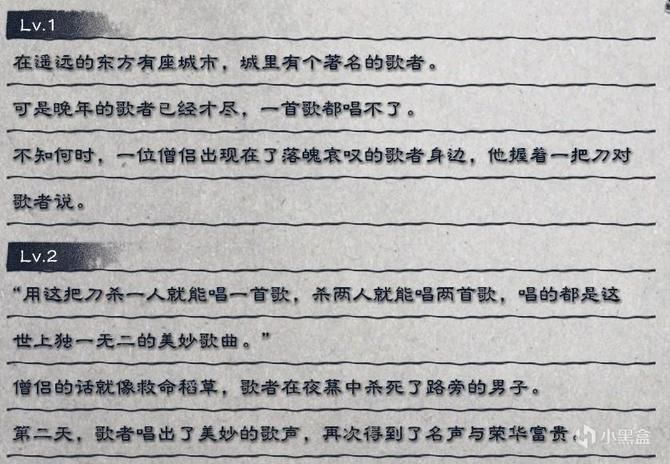 Lv.1
在遥远的东方有座城市，城里有个著名的歌者。
可是晚年的歌者已经才尽，一首歌都唱不了。
不知何时，一位僧侣出现在了落魄哀叹的歌者身边，他握着一把刀对
歌者说。
Lv.2
“用这把刀杀一人就能唱一首歌，杀两人就能唱两首歌，唱的都是这
世上独一无二的美妙歌曲。”
僧侣的话就像救命稻草，歌者在夜幕中杀死了路旁的男子。
第二天，歌者唱出了美妙的歌声，再次得到了名声与荣华富贵。
小黑盒